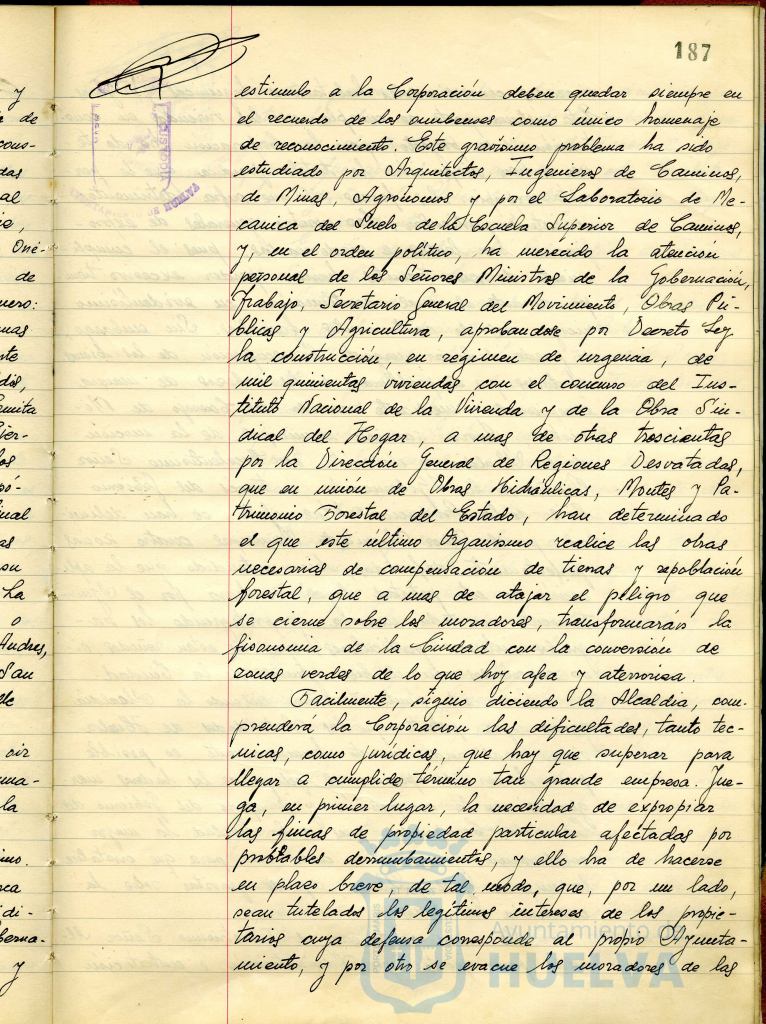 187
estimulo a la Corporación deben quedar siempre en
el recuerdo de los onubenses como único homenaje
de reconocimiento. Este gravísimo problema ha sido
estudiado por Arquitectos, Ingenieros de Caminos,
de Minas, Agrónomos y por el Laboratorio de Me-
canica del Suelo de la Escuela Superior de Caminos,
y, en el orden político, ha merecido la atención
personal de los Señores Ministros de la Gobernación,
Trabajo, Secretario General del Movimiento, Obras Pú-
blicas y Agricultura, aprobandose por Decreto Ley
la construcción, en regimen de urgencia, de
mil quinientas viviendas con el concurso del Ins-
tituto Nacional de la Vivienda y de la Obra Sin-
dical del Hogar, a mas de otras trescientas
por la Dirección General de Regiones Desvatadas,
que en unión de Obras Hidráulicas, Montes y Pa-
trimonio Forestal del Estado, han determinado
el que este último Organismo realice las obras
necesarias de compensación de tierras y repoblación
forestal, que a mas de atajar el peligro que
se cierne sobre los moradores, transformarán la
fisonomia de la Ciudad con la conversión de
zonas verdes de lo que hoy afea y aterroriza.
Facilmente, siguio diciendo la Alcaldia, com-
prenderá la Corporación las dificultades, tanto tec-
nicas, como jurídicas, que hay que superar para
llegar a cumplido término tan grande empresa. Jue-
ga, en primer lugar, la necesidad de expropiar
las fincas de propiedad particular afectadas por
probables derrumbamientos, y ello ha de hacerse
en plazo breve, de tal modo, que, por un lado,
sean tutelados los legítimos intereses de los propie-
tarios cuya defensa corresponde al propio Ayunta-
miento, y por otro se evacue los moradores de las
Ayuntamiento de
HUELVA